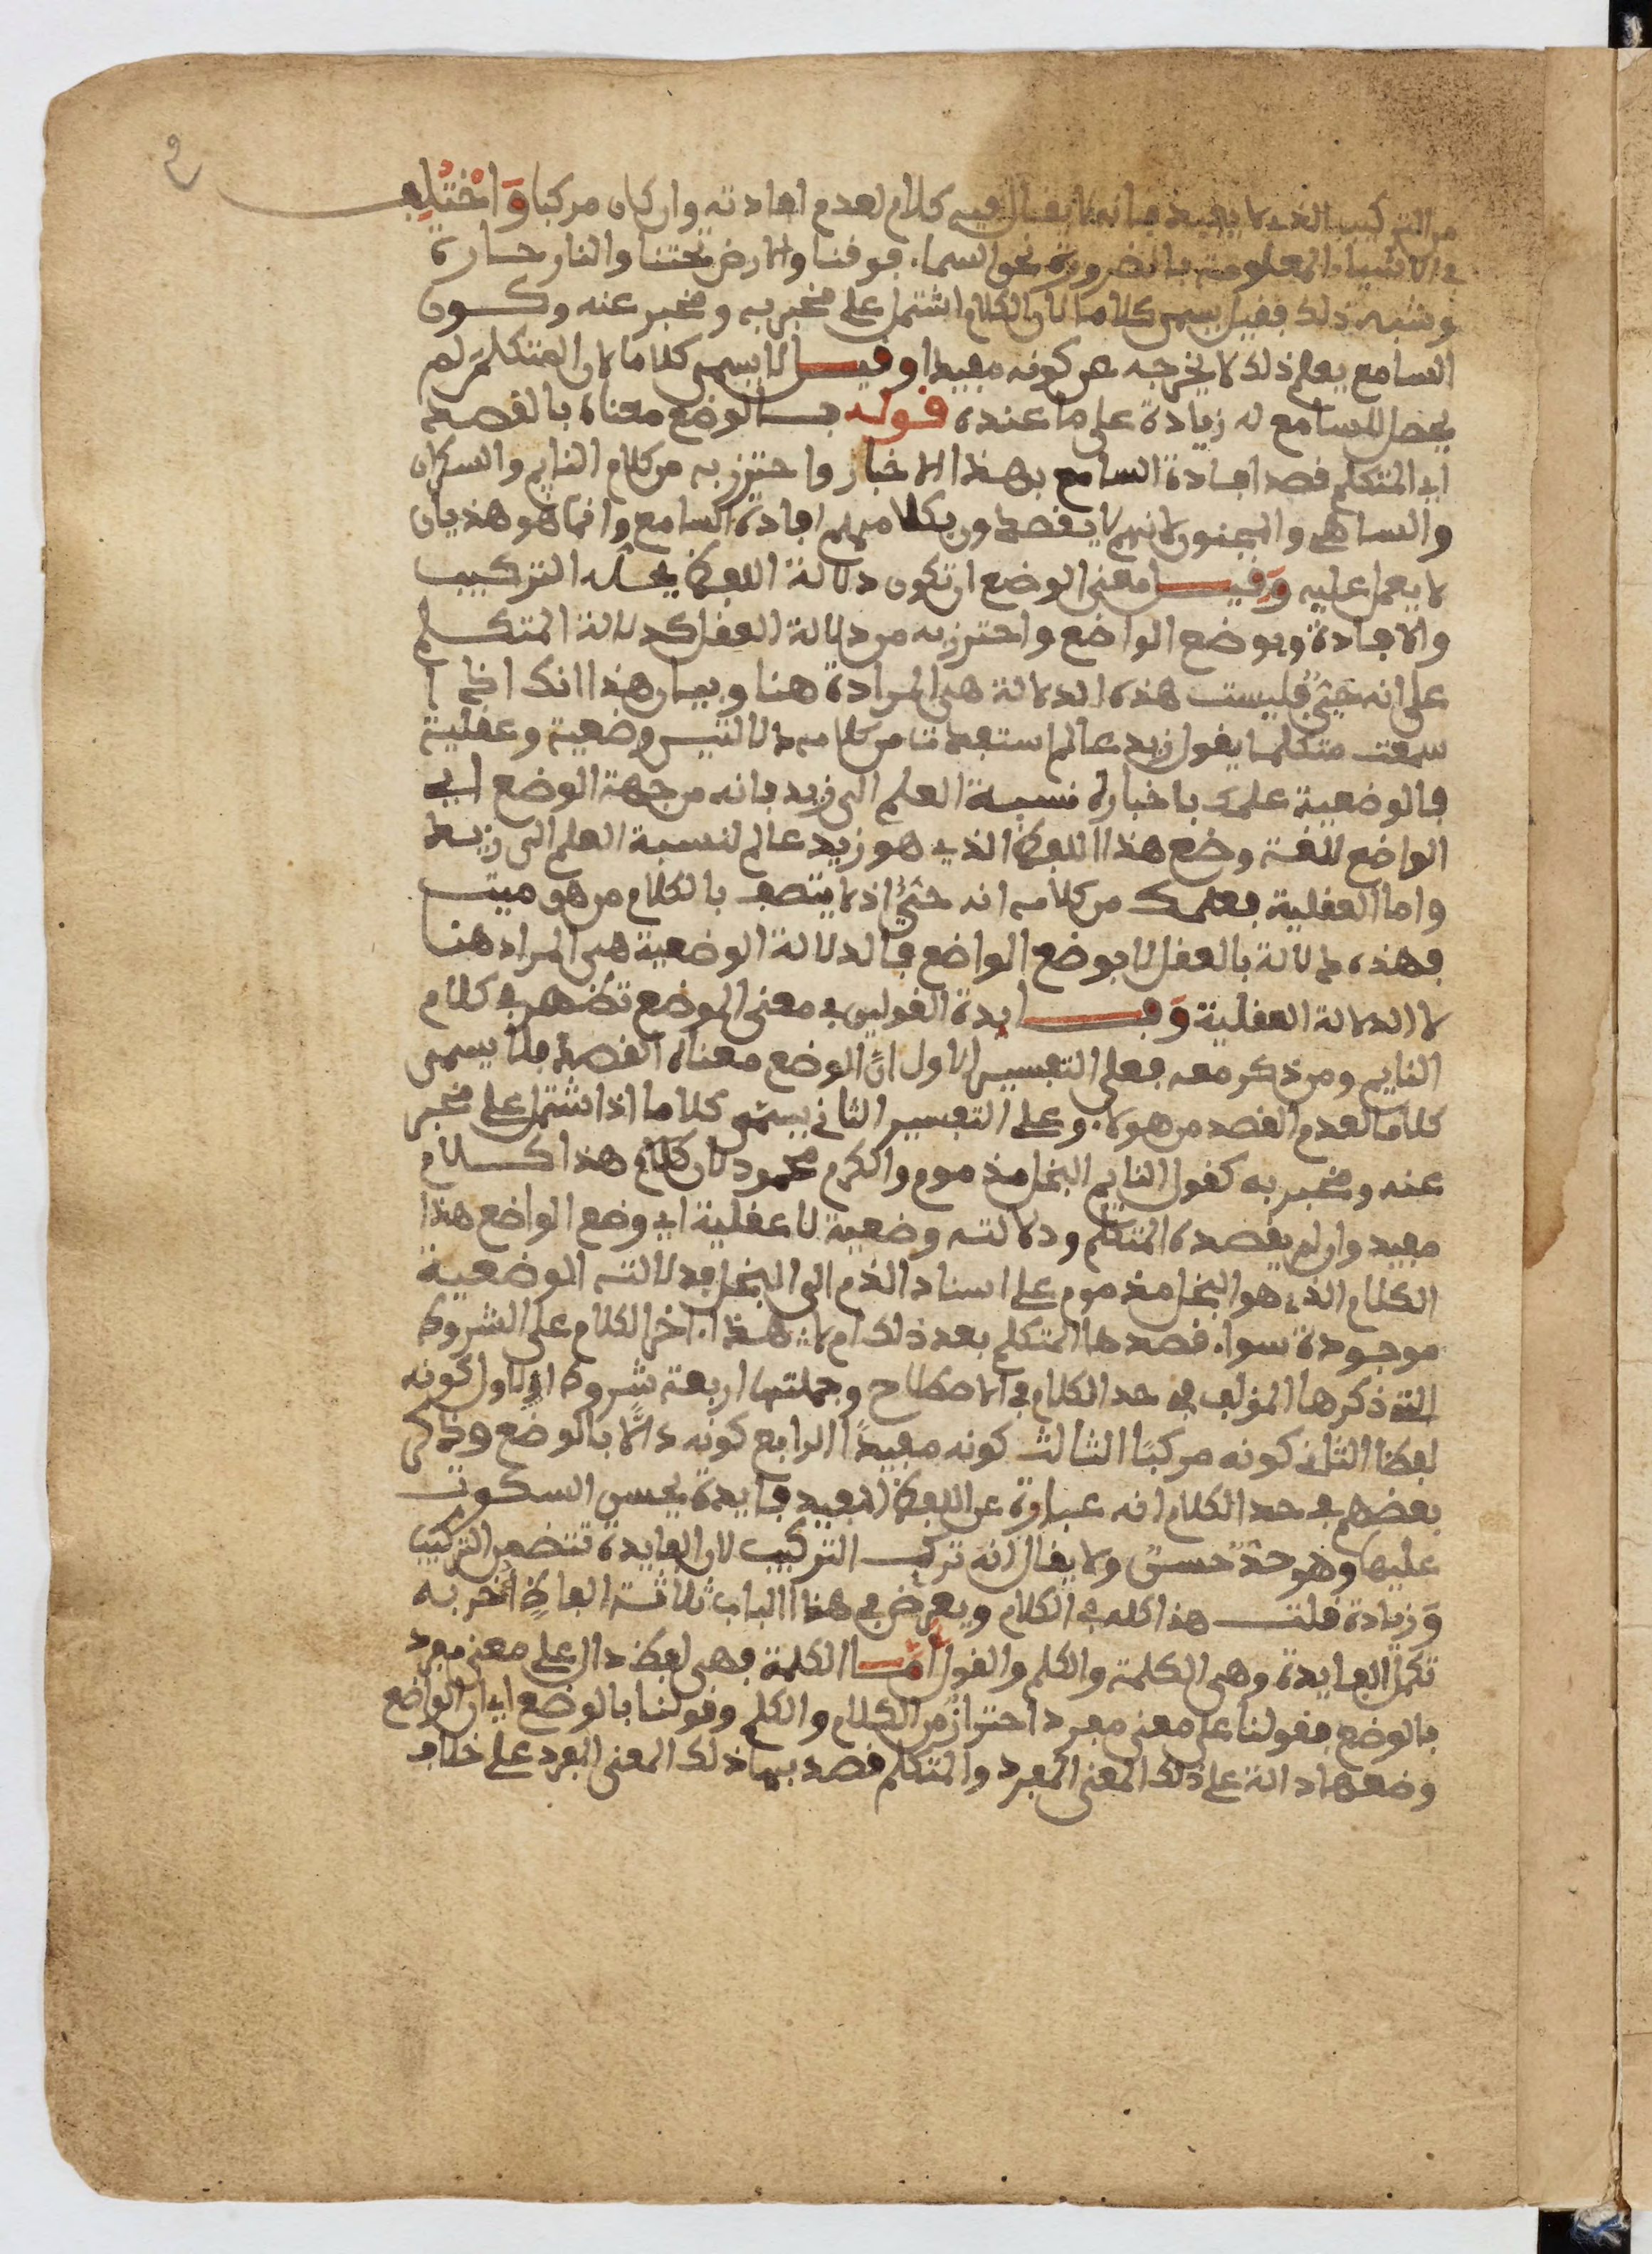 من التركيب الذي لا يفيد فانه لا يقال فيه كلام لعدم افادته وان كان مركبا وَاخْتُلِف
في الاشياء المعلومة بالضرورة نحو السماء فوقنا والارض تحتنا والنار حارة
وشبه ذلك فقيل يسمى كلاما لان الكلام اشتمل على مخبر به ومخبر عنه وكون
السامع يعلم ذلك لا يخرجه عن كونه مفيدا وقيل لا يسمى كلاما لان المتكلم لم
يحصل للسامع له زيادة على ما عنده قوله بالوضع معناه بالقصد
اي المتكلم قصد افادة السامع بهذا الاخبار واحترز به من كلام النايم والسكران
والساهي والمجنون لانهم لا يقصدون بكلامهم افادة السامع وانما هو هذيان
لا يعمل عليه وَقيل معنى الوضع ان تكون دلالة اللفظ التركيب
والافادة وبوضع الواضع واحترز به من دلالة العقل كدلالة المتكلم
على انه حيٌّ فليست هذه الدلالة هي المرادة هنا وبيان هذا انك اذا
سمعت متكلما يقول زيد عالم استفدت من كلامه دلالتين وضعية وعقلية
فالوضعية علمك باخباره نسبة العلم الى زيد فانه من جهة الوضع اي
الواضع للغة وضع هذا اللفظ الذي هو زيد عالم لنسبة العلم الى زيد
واما العقلية فعلمك من كلامه انه حيٌّ اذ لا يتصف بالكلام من هو ميت
فهذه دلالة بالعقل لا بوضع الواضع فالدلالة الوضعية هي المراد هنا
لا الدلالة العقلية وَفايدة القولين في معنى الوضع تظهر في كلام
النايم ومن ذكر معه فعلى التفسير الاول انّ الوضع معناه القصد فلا يسمى
كلاما لعدم القصد من هولاء وعلى التفسير الثاني يسمى كلاما اذا اشتمل على مخبر
عنه ومخبر به كقول النايم البخل مذموم والكرم محمود لان كلام هذا كلام
مفيد وان لم يقصده المتكلم ودلالته وضعية لا عقلية اي وضع الواضع هذا
الكلام الذي هو البخل مذموم على اسناد الذم الى البخل فدلالته الوضعية
موجودة سواء قصدها المتكلم بعد ذلك ام لا هذا اخر الكلام على الشروط
التي ذكرها المولف في حد الكلام في الاصطلاح وجملتها اربعة شروط الاول كونه
لفظا الثاني كونه مركبًا الثالث كونه مفيدًا الرابع كونه دالًّا بالوضع وذكر
بعضهم في حد الكلام انه عبارة عن اللفظ المفيد فايدة يحسن السكوت
عليها وهو حدٌّ حسنٌ ولا يقال انه ترك التركيب لان الفايدة تتضمن التركيب
وَزيادة قلت هذا كله في الكلام ويعرض في هذا الباب ثلاثة الفاظٍ أُخر به
تكمل الفايدة وهي الكلمة والكلم والقول أمّا الكلمة فهي لفظ دال على معنى مفرد
بالوضع فقولنا على معنى مفرد احترازٌ من الكلام والكلم وقولنا بالوضع اي ان الواضع
وضعها دالة على ذلك المعنى المفرد والمتكلم قصد بها ذلك المعنى المفرد على خلاف